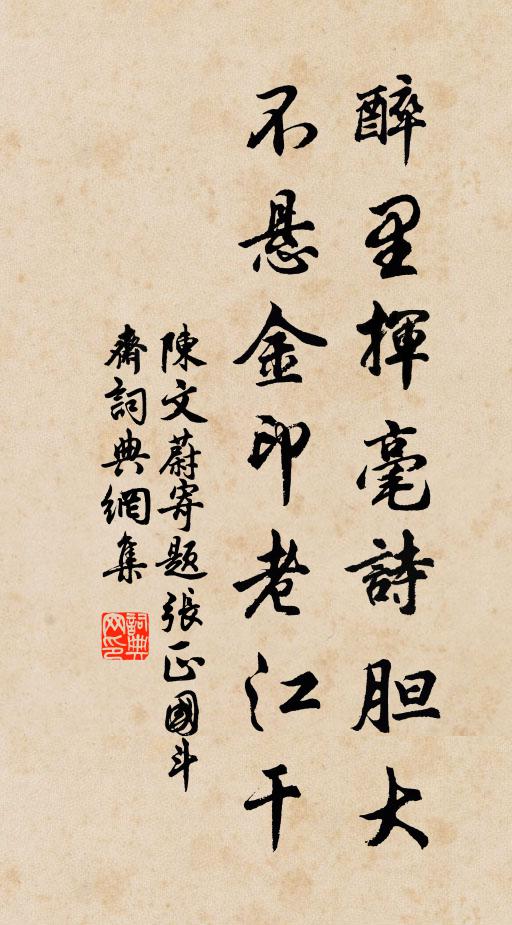 醉里揮毫詩胆大
不悬金印老江干
陳文蔚寄题張正國斗
齋詞典網集
詞典
网印